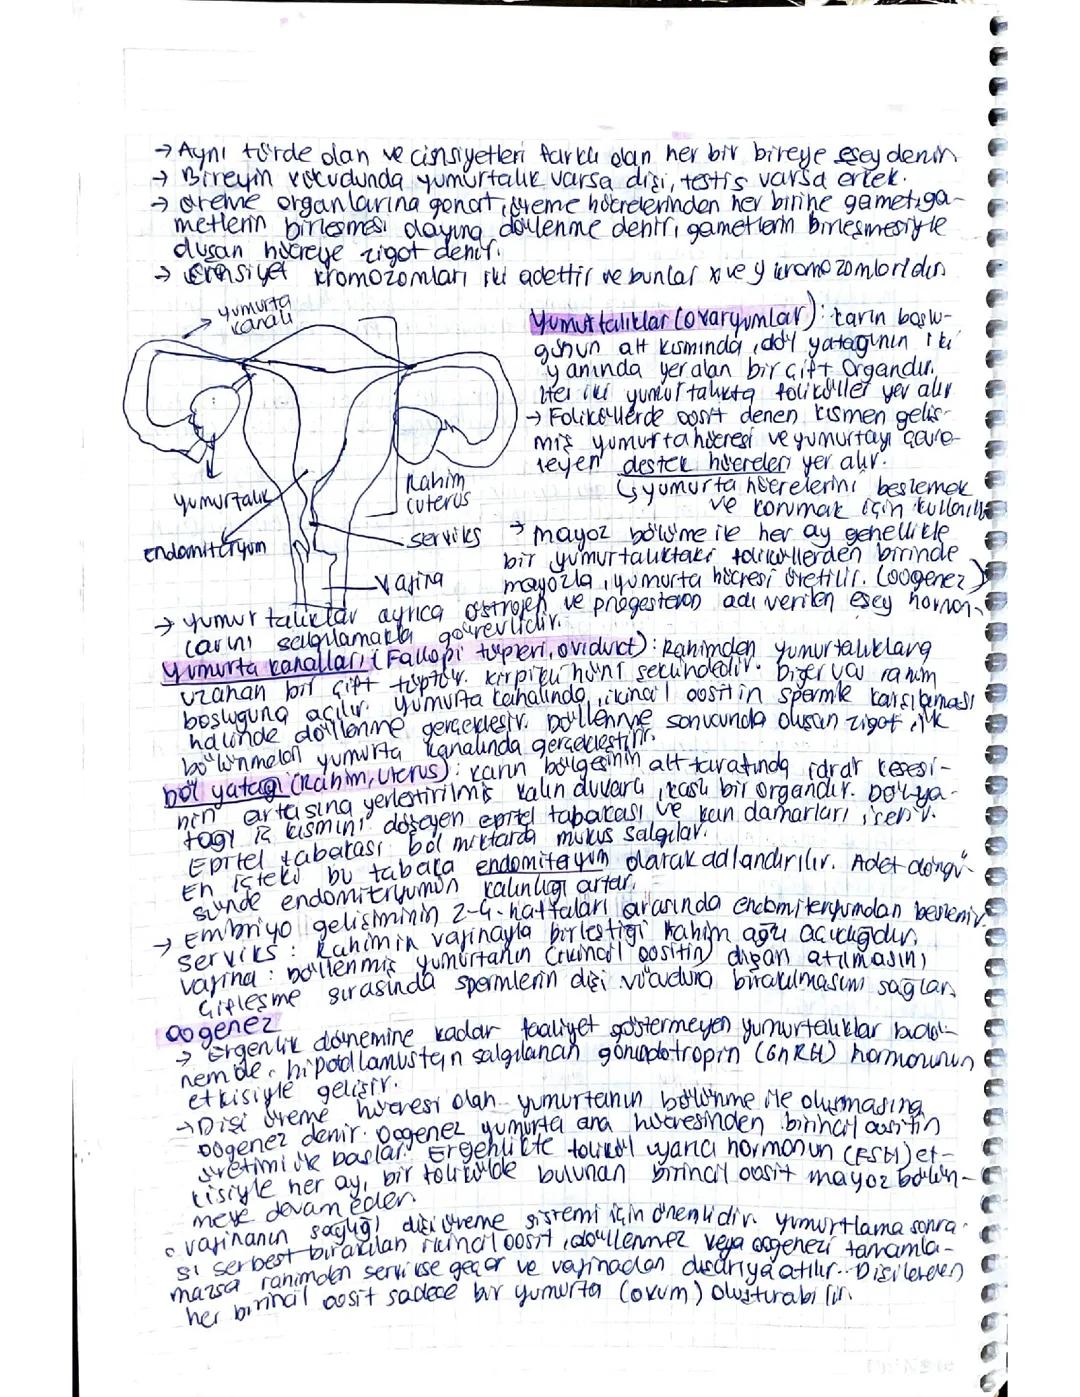 → Aynı türde olan ve cinsiyetleri farklı olan her bir bireye eşey denir
→ Bireyin vücudunda yumurtalık varsa dişi, testis varsa erkek.
→ üreme organlarına gonat, üreme hücrelerinden her birine gamet, ga-
metlerin birleşmesi olayına döllenme denir, gametlerin birleşmesiyle
oluşan hücreye zigot denir.
→ cinsiyet kromozomları iki adettir ve bunlar x ve y kromozomlarıdır
yumurta
kanalı
yumurtalık
endomiteryum
Rahim
(uterus
serviks
vajina
Yumurtalıklar (ovaryumlar): karın boşlu-
ğunun alt kısmında, döl yatağının iki
yanında yer alan bir çift organdır.
Her iki yumurtalıkta foliküller yer alır
→ Foliküllerde oosit denen kısmen geliş-
miş yumurta hücresi ve yumurtayı çevre-
leyen destek hücreleri yer alır.
↳ yumurta hücrelerini beslemek
ve korumak için kullanılır
→ mayoz bölünme ile her ay genellikle
bir yumurtalıktaki foliküllerden birinde
mayozla, yumurta hücresi üretilir. (oogenez)
→ yumurtalıklar ayrıca östrojen ve progesteron adı verilen eşey hormon-
larını salgılamakla görevlidir.
Yumurta kanalları (Fallopi tüpleri, oviduct): Rahimden yumurtalıklara
uzanan bir çift tüptür. kirpikli huni şeklindedir. Diğer ucu rahim
boşluğuna açılır. yumurta kanalında, ikincil oositin spermle karşılaşması
halinde döllenme gerçekleşir. Döllenme sonucunda oluşan zigot, ilk
bölünmeleri yumurta kanalında gerçekleştirir.
Döl yatağı (Rahim, Uterus): karın bölgesinin alt tarafında, idrar kesesi-
nin arkasına yerleştirilmiş kalın duvarlı, kaslı bir organdır. Döl ya-
tağı iç kısmını döşeyen epitel tabakası ve kan damarları içerir.
Epitel tabakası bol miktarda mukus salgılar.
En içteki bu tabaka endomiteryum olarak adlandırılır. Adet döngü-
sünde endomiteryumun kalınlığı artar.
→ Embriyo gelişiminin 2-4. haftaları arasında endomiteryumdan beslenir.
serviks: Rahimin vajinayla birleştiği rahim ağzı açıklığıdır.
vajina: Döllenmiş yumurtanın (ikincil oositin) dışarı atılmasını
Çiftleşme sırasında spermlerin dişi vücuduna bırakılmasını sağlar.
oogenez
→ Ergenlik dönemine kadar faaliyet göstermeyen yumurtalıklar bu dö-
nemde, hipotallamusteın salgılanan gonadotropin (GnRH) hormonunun
etkisiyle gelişir.
→ Dişi üreme hücresi olan yumurtanın bölünme ile oluşmasına
oogenez denir. Oogenez yumurta ana hücresinden birincil oositin
üretimi ile başlar. Ergenlikte folikül uyarıcı hormonun (FSH) et-
kisiyle her ay, bir folikülde bulunan birincil oosit mayoz bölün-
meye devam eder.
° vajinanın sağlığı dişi üreme sistemi için önemlidir. yumurtlama sonra-
sı serbest bırakılan ikincil oosit, döllenmez veya oogenezi tamamla-
mazsa rahimden servikse geçer ve vajinadan dışarıya atılır. Dişilerden
her birincil oosit sadece bir yumurta (ovum) oluşturabilir.